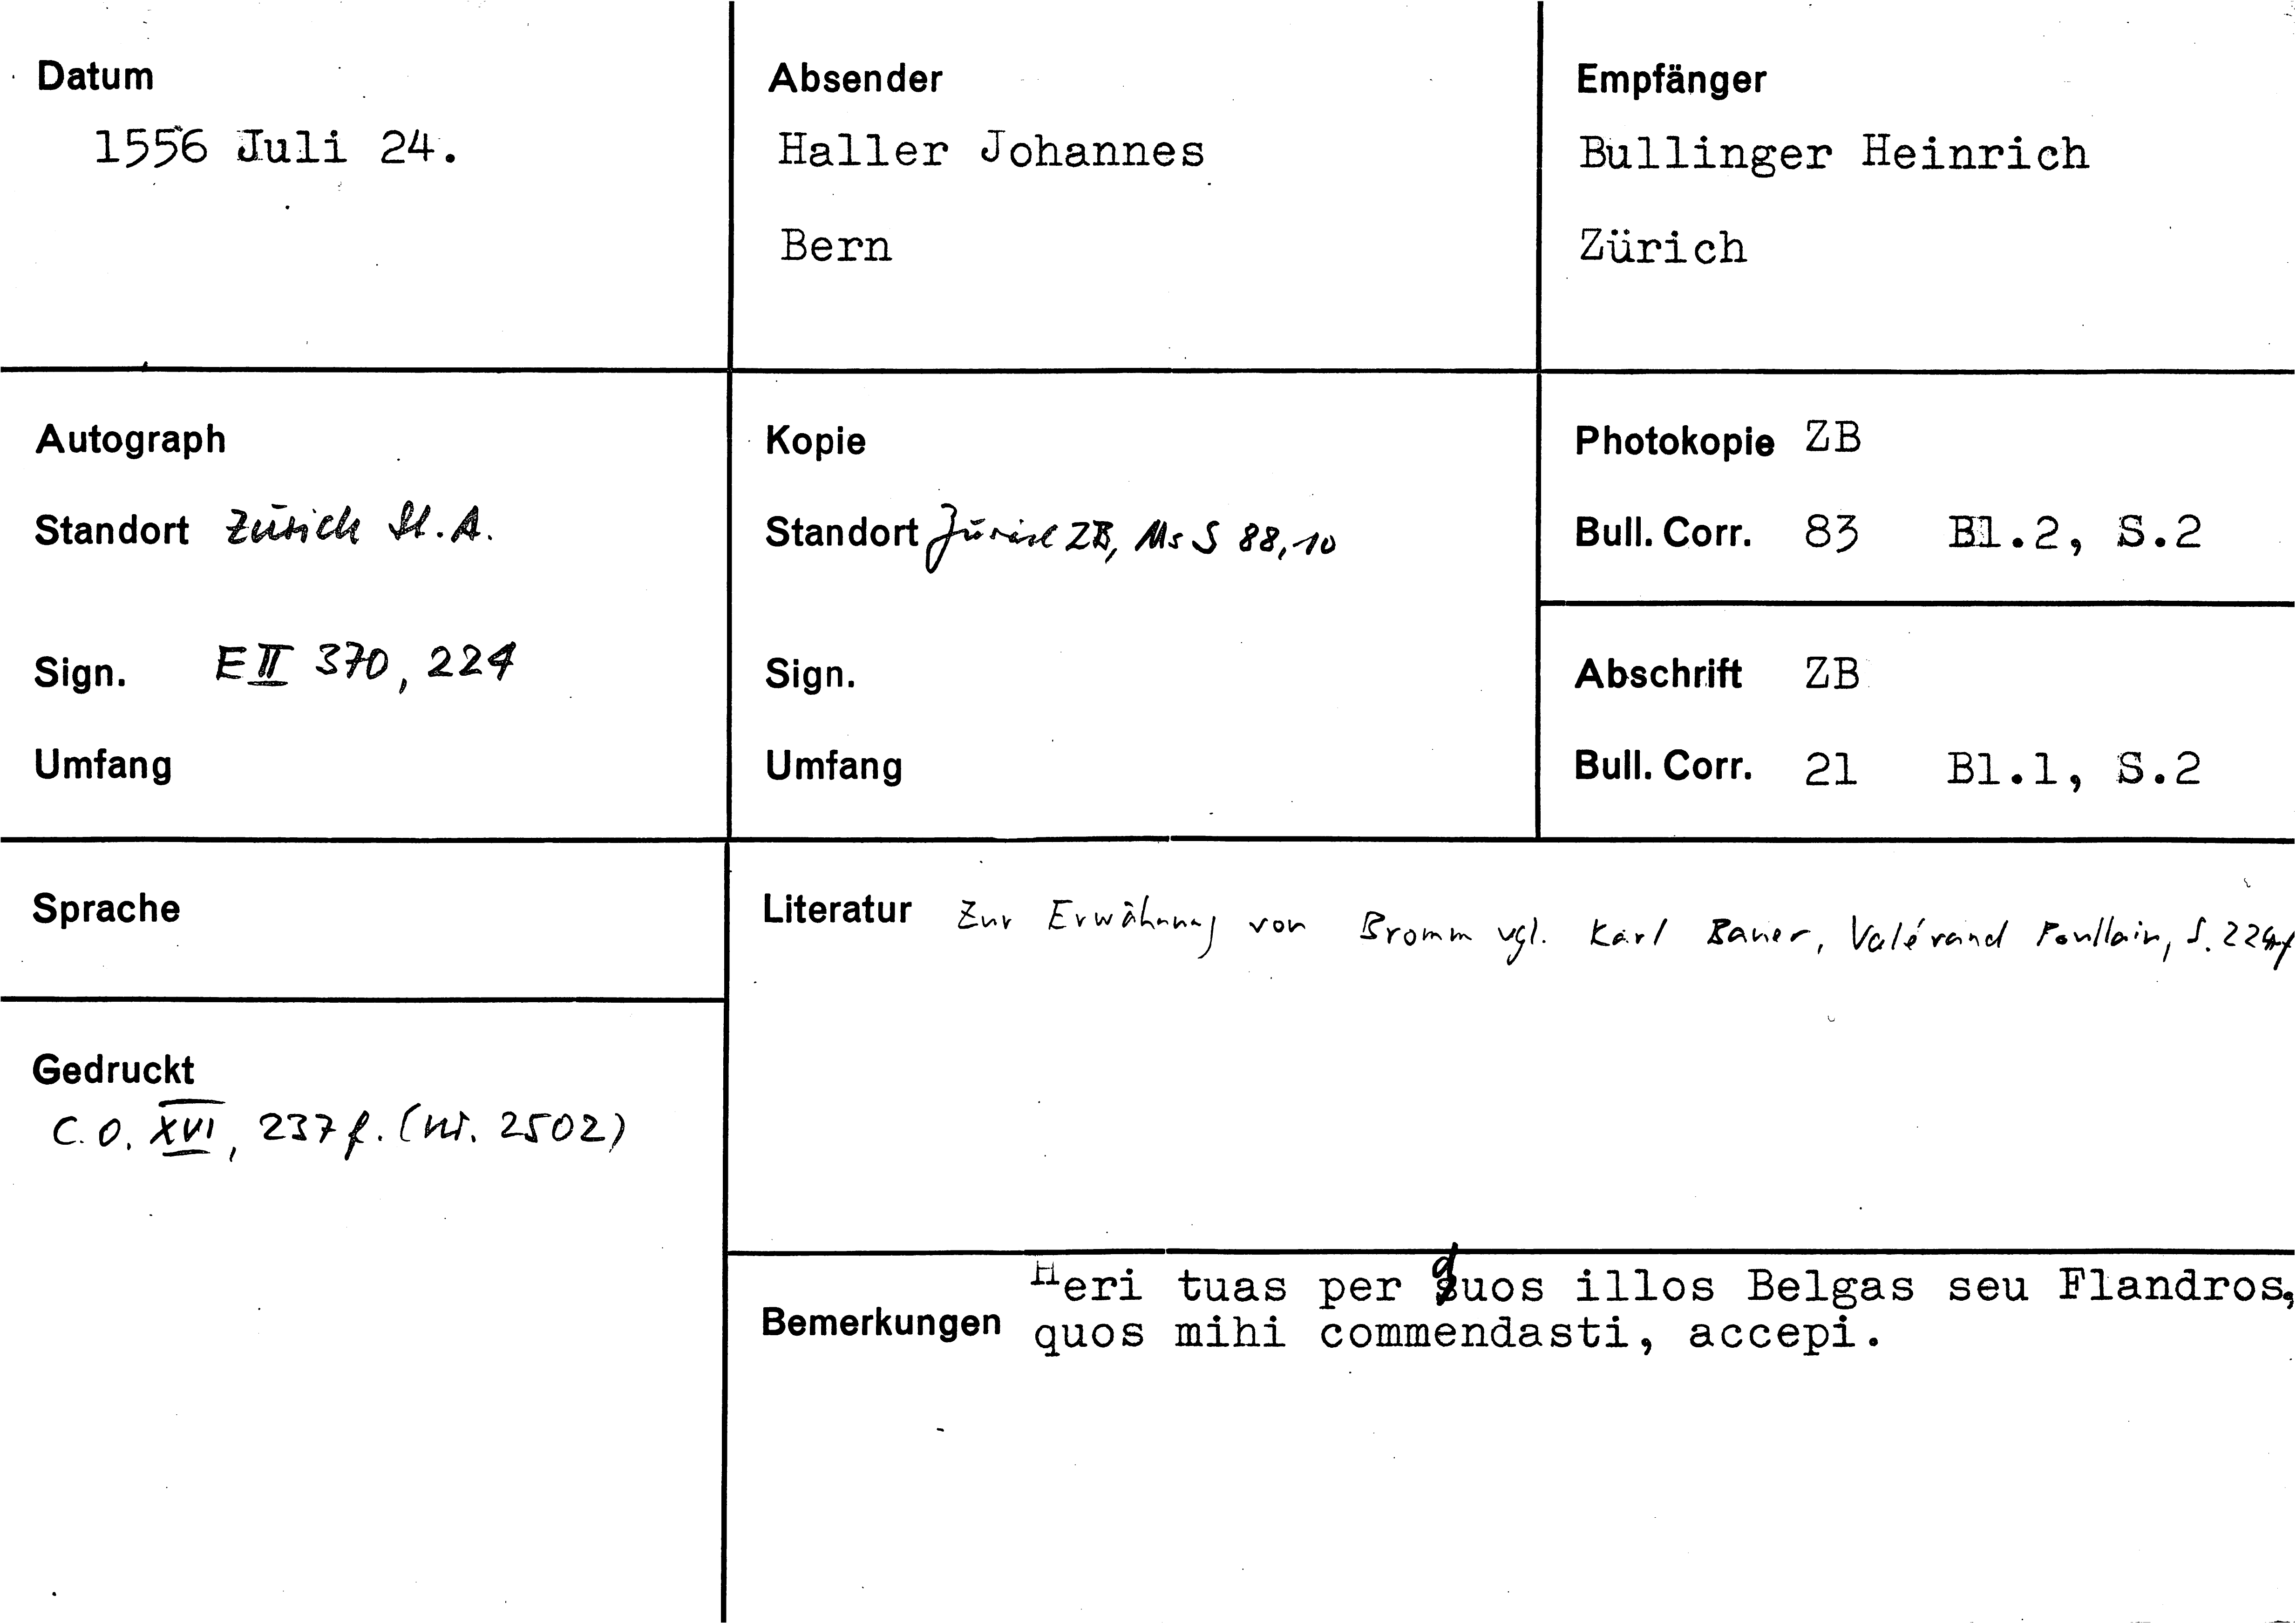 Datum
1556 Juli 24.
Absender
Haller Johannes
Bern
Empfänger
Bullinger Heinrich
Zürich
Autograph
Standort Zürich St. A.
Sign. E II 370, 224
Umfang
Kopie
Standort Zürich ZB, Ms S 88, 10
Sign.
Umfang
Photokopie ZB
Bull. Corr. 83 Bl.2, S.2
Abschrift ZB
Bull. Corr. 21 Bl.1, S.2
Sprache
Literatur Zur Erwähnung von Bromm vgl. Karl Bauer, Valérand Poullain, S. 224f
Gedruckt
C.O. XVI, 237 f. (Nr. 2502)
Bemerkungen
Heri tuas per quos illos Belgas seu Flandros,
quos mihi commendasti, accepi.